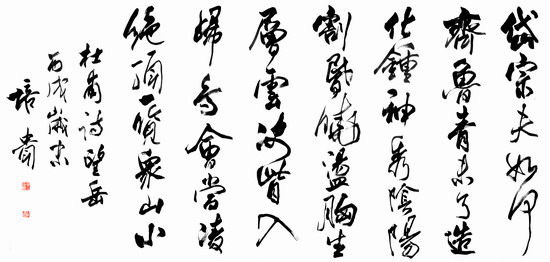 岱宗夫如何
齊魯青未了造
化鍾神秀陰陽
割昏曉盪胸生
層雲決眥入
歸鳥會當凌
絕頂一覽衆山小
杜甫詩望岳
丙戌歲末
培貴